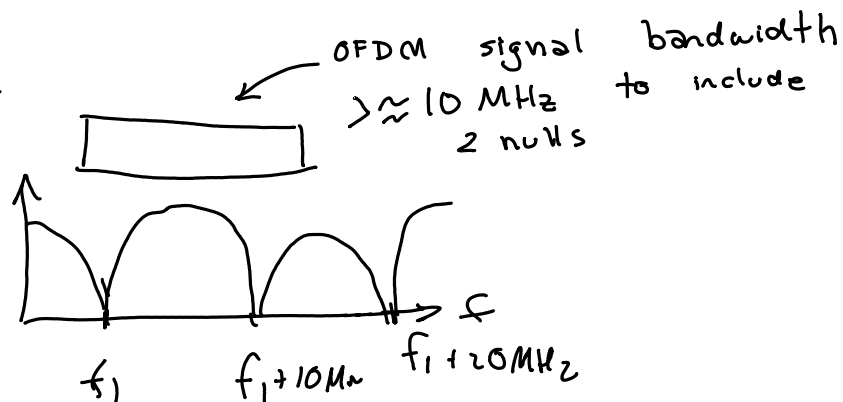 OFDM signal bandwidth
>≈ 10 MHz to include
2 nulls
f
f₁ f₁+10MHz f₁+20MHz